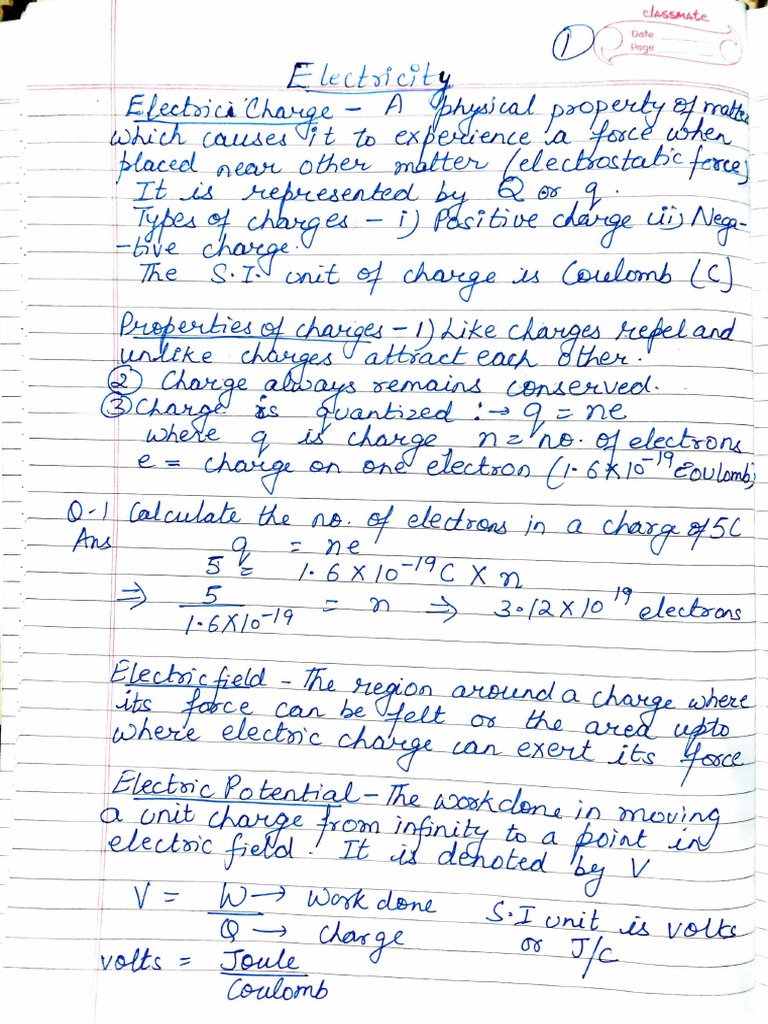 classmate
Date
Page
1
Electricity
Electric Charge - A physical property of matter
which causes it to experience a force when
placed near other matter (electrostatic force)
It is represented by Q or q.
Types of charges - i) Positive charge ii) Nega-
-tive charge.
The S.I. unit of charge is Coulomb (C)
Properties of charges - 1) Like charges repel and
unlike charges attract each other.
2 Charge always remains conserved.
3 Charge is quantized :→ q = ne
where q is charge n = no. of electrons
e = charge on one electron (1.6 X 10⁻¹⁹ Coulomb)
Q-1 Calculate the no. of electrons in a charge of 5C
Ans q = ne
5 = 1.6 X 10⁻¹⁹C X n
⇒ 5 / 1.6X10⁻¹⁹ = n ⇒ 3.12 X 10¹⁹ electrons
Electric field - The region around a charge where
its force can be felt or the area upto
where electric charge can exert its force
Electric Potential - The work done in moving
a unit charge from infinity to a point in
electric field. It is denoted by V
V = W → work done S.I unit is volts
Q → charge or J/C
volts = Joule
Coulomb